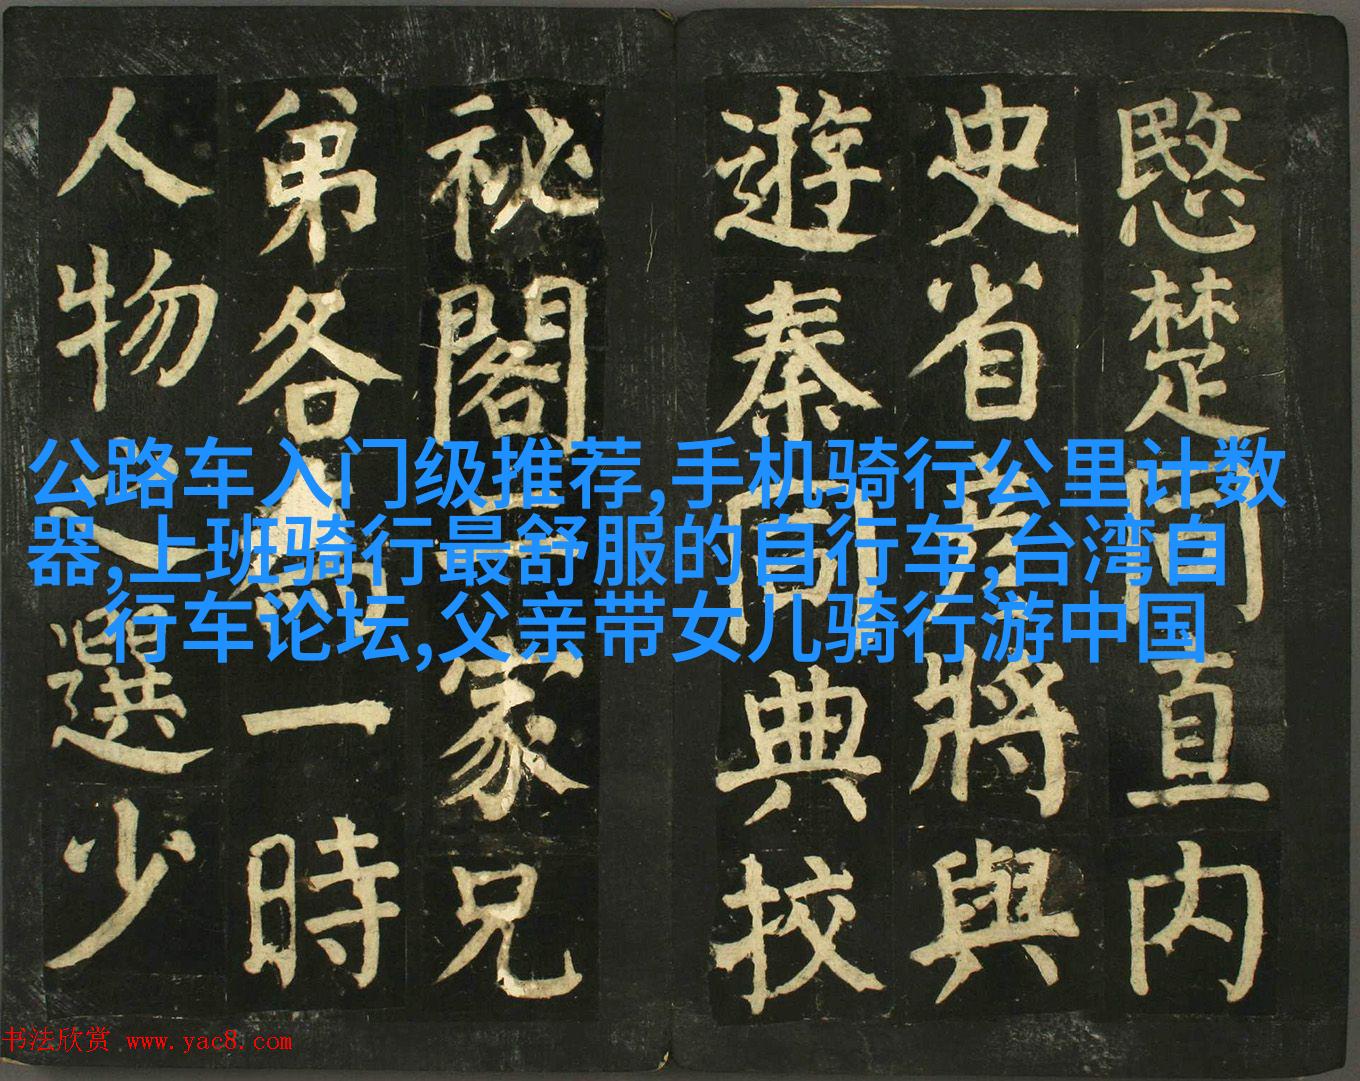 愍楚直内
史省將與
遊秦同典校
祕閣家兄
弟各一時
人物之選少
公路车入门级推荐,手机骑行公里计数
器,上班骑行最舒服的自行车,台湾自
行车论坛,父亲带女儿骑行游中国
书法欣赏 www.yac8.com